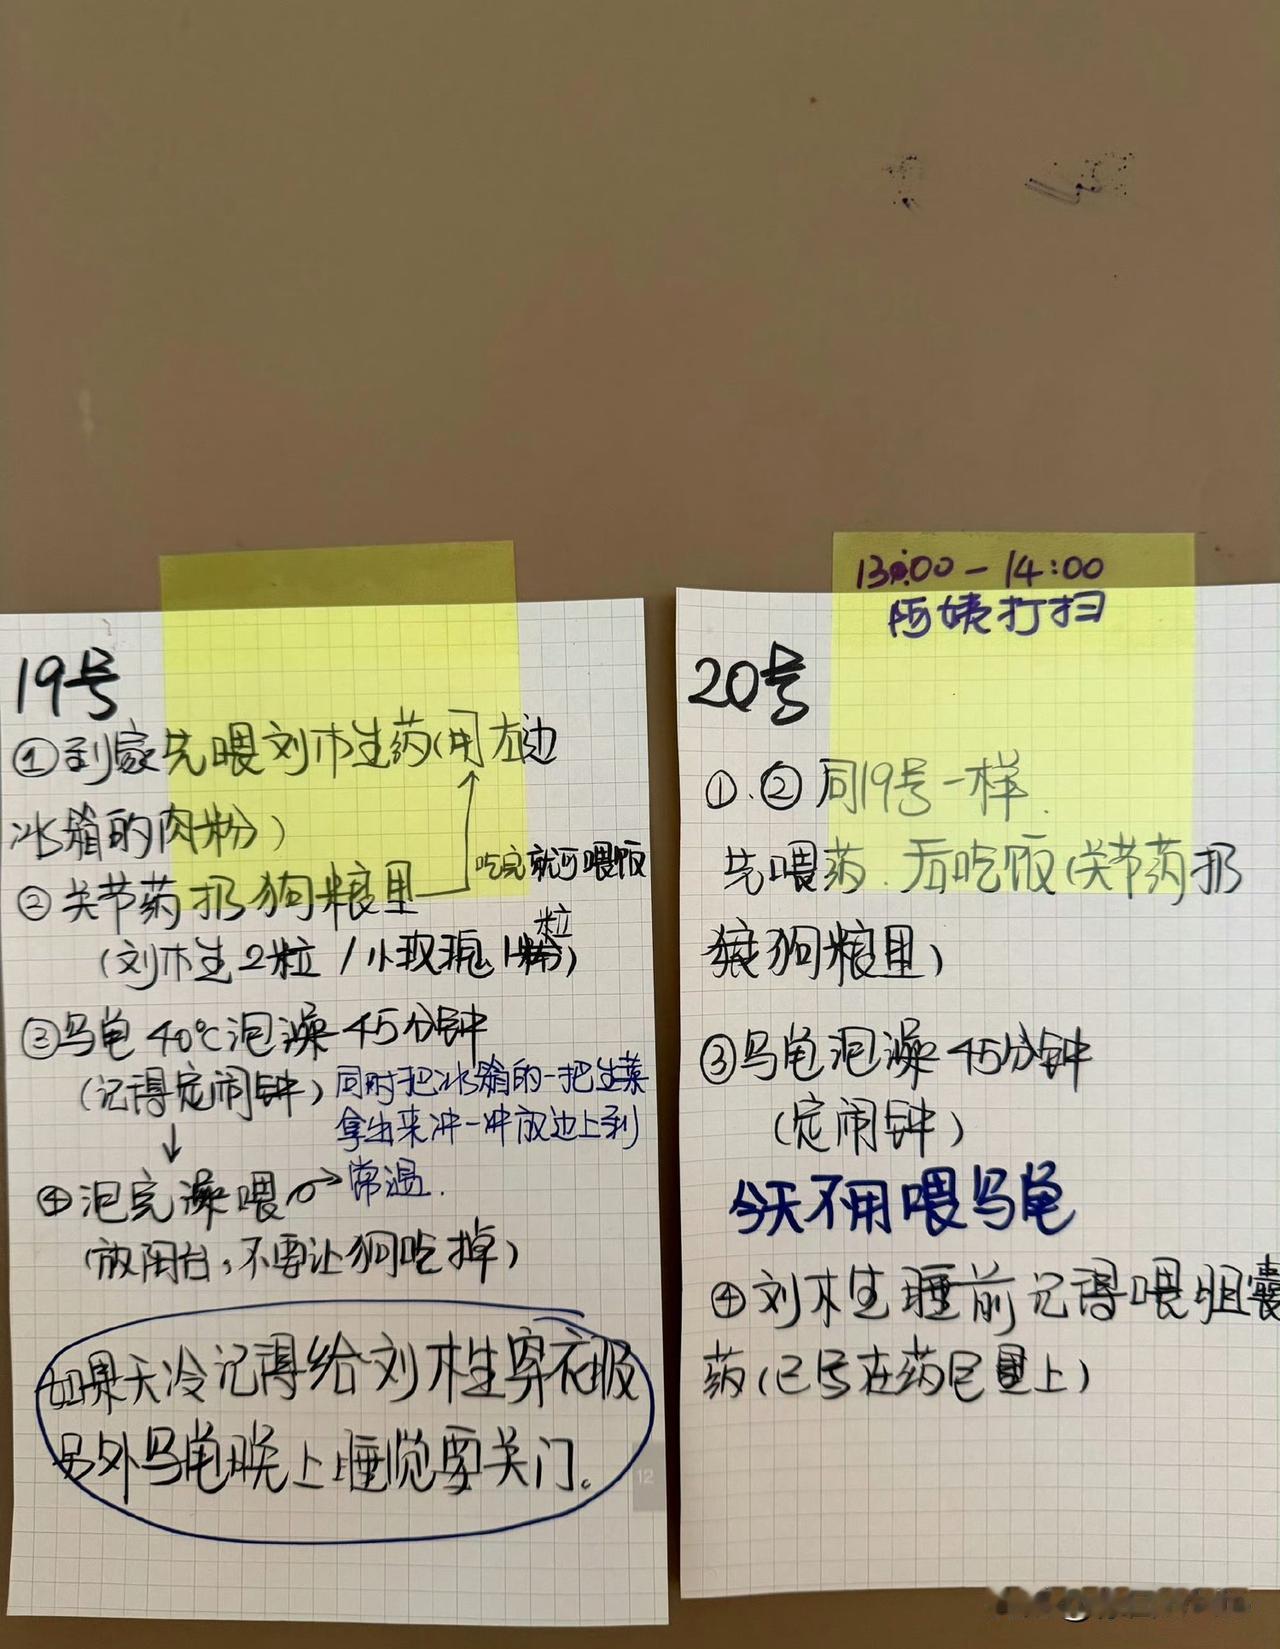 19号
①到家先喂刘木生药(用左边
冰箱的肉粉)
吃完就可喂饭
②关节药扔狗粮里
(刘木生2粒/小玫瑰1粒)
③乌龟40℃泡澡45分钟
(记得定闹钟)
同时把冰箱的一把生菜
拿出来冲一冲放边上到
常温.
④泡完澡喂
(放阳台,不要让狗吃掉)
如果天冷记得给刘木生穿衣服
另外乌龟晚上睡觉要关门。
12
13:00-14:00
阿姨打扫
20号
①.②同19号一样.
先喂药.后吃饭(关节药扔
狗粮里)
③乌龟泡澡45分钟
(定闹钟)
今天不用喂乌龟
④刘木生睡前记得喂胆囊
药(已写在药盒上)